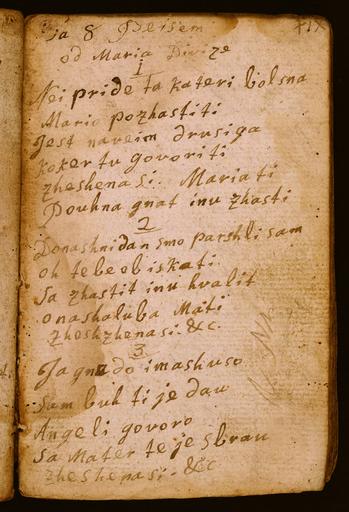 ta 8 Peisem
od Maria Divize
1
Nei pride ta kateri bolsna
Mario pozhastiti
Jest naveim drusiga
koker tu govoriti
zheshena si. Maria ti
Pouhna gnat inu zhasti
2
Donashnidan smo parshli sam
oh tebe obiskati
Sa zhastit inu hvalit
onashaluba Mati
Zheshzhenasi. &c.
3
Ta gnado imashuso
Sam buh ti je dau
Angeli govoro
Sa Mater te je sbrau
zheshenasi. &c